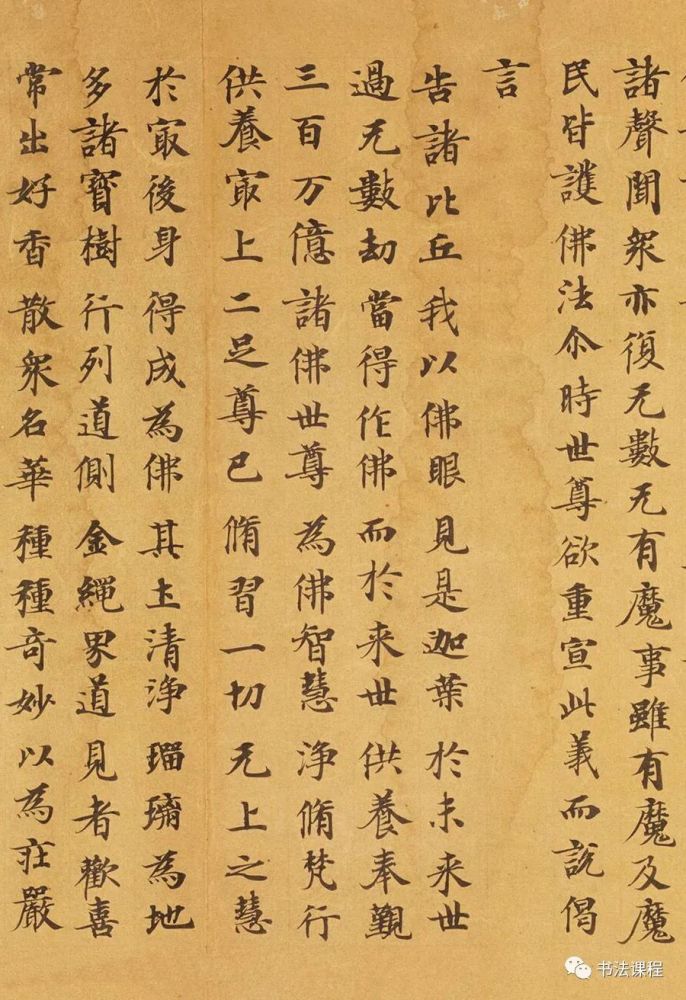 諸聲聞衆亦復无數无有魔事雖有魔及魔
民皆護佛法尒時世尊欲重宣此義而說偈
言
告諸比丘 我以佛眼 見是迦葉 於未来世
過无數劫 當得作佛 而於来世 供養奉覲
三百万億 諸佛世尊 為佛智慧 淨脩梵行
供養冣上 二足尊已 脩習一切 无上之慧
於冣後身 得成為佛 其土清淨 瑠璃為地
多諸寶樹 行列道側 金繩界道 見者歡喜
常出好香 散衆名華 種種奇妙 以為莊嚴
书法课程